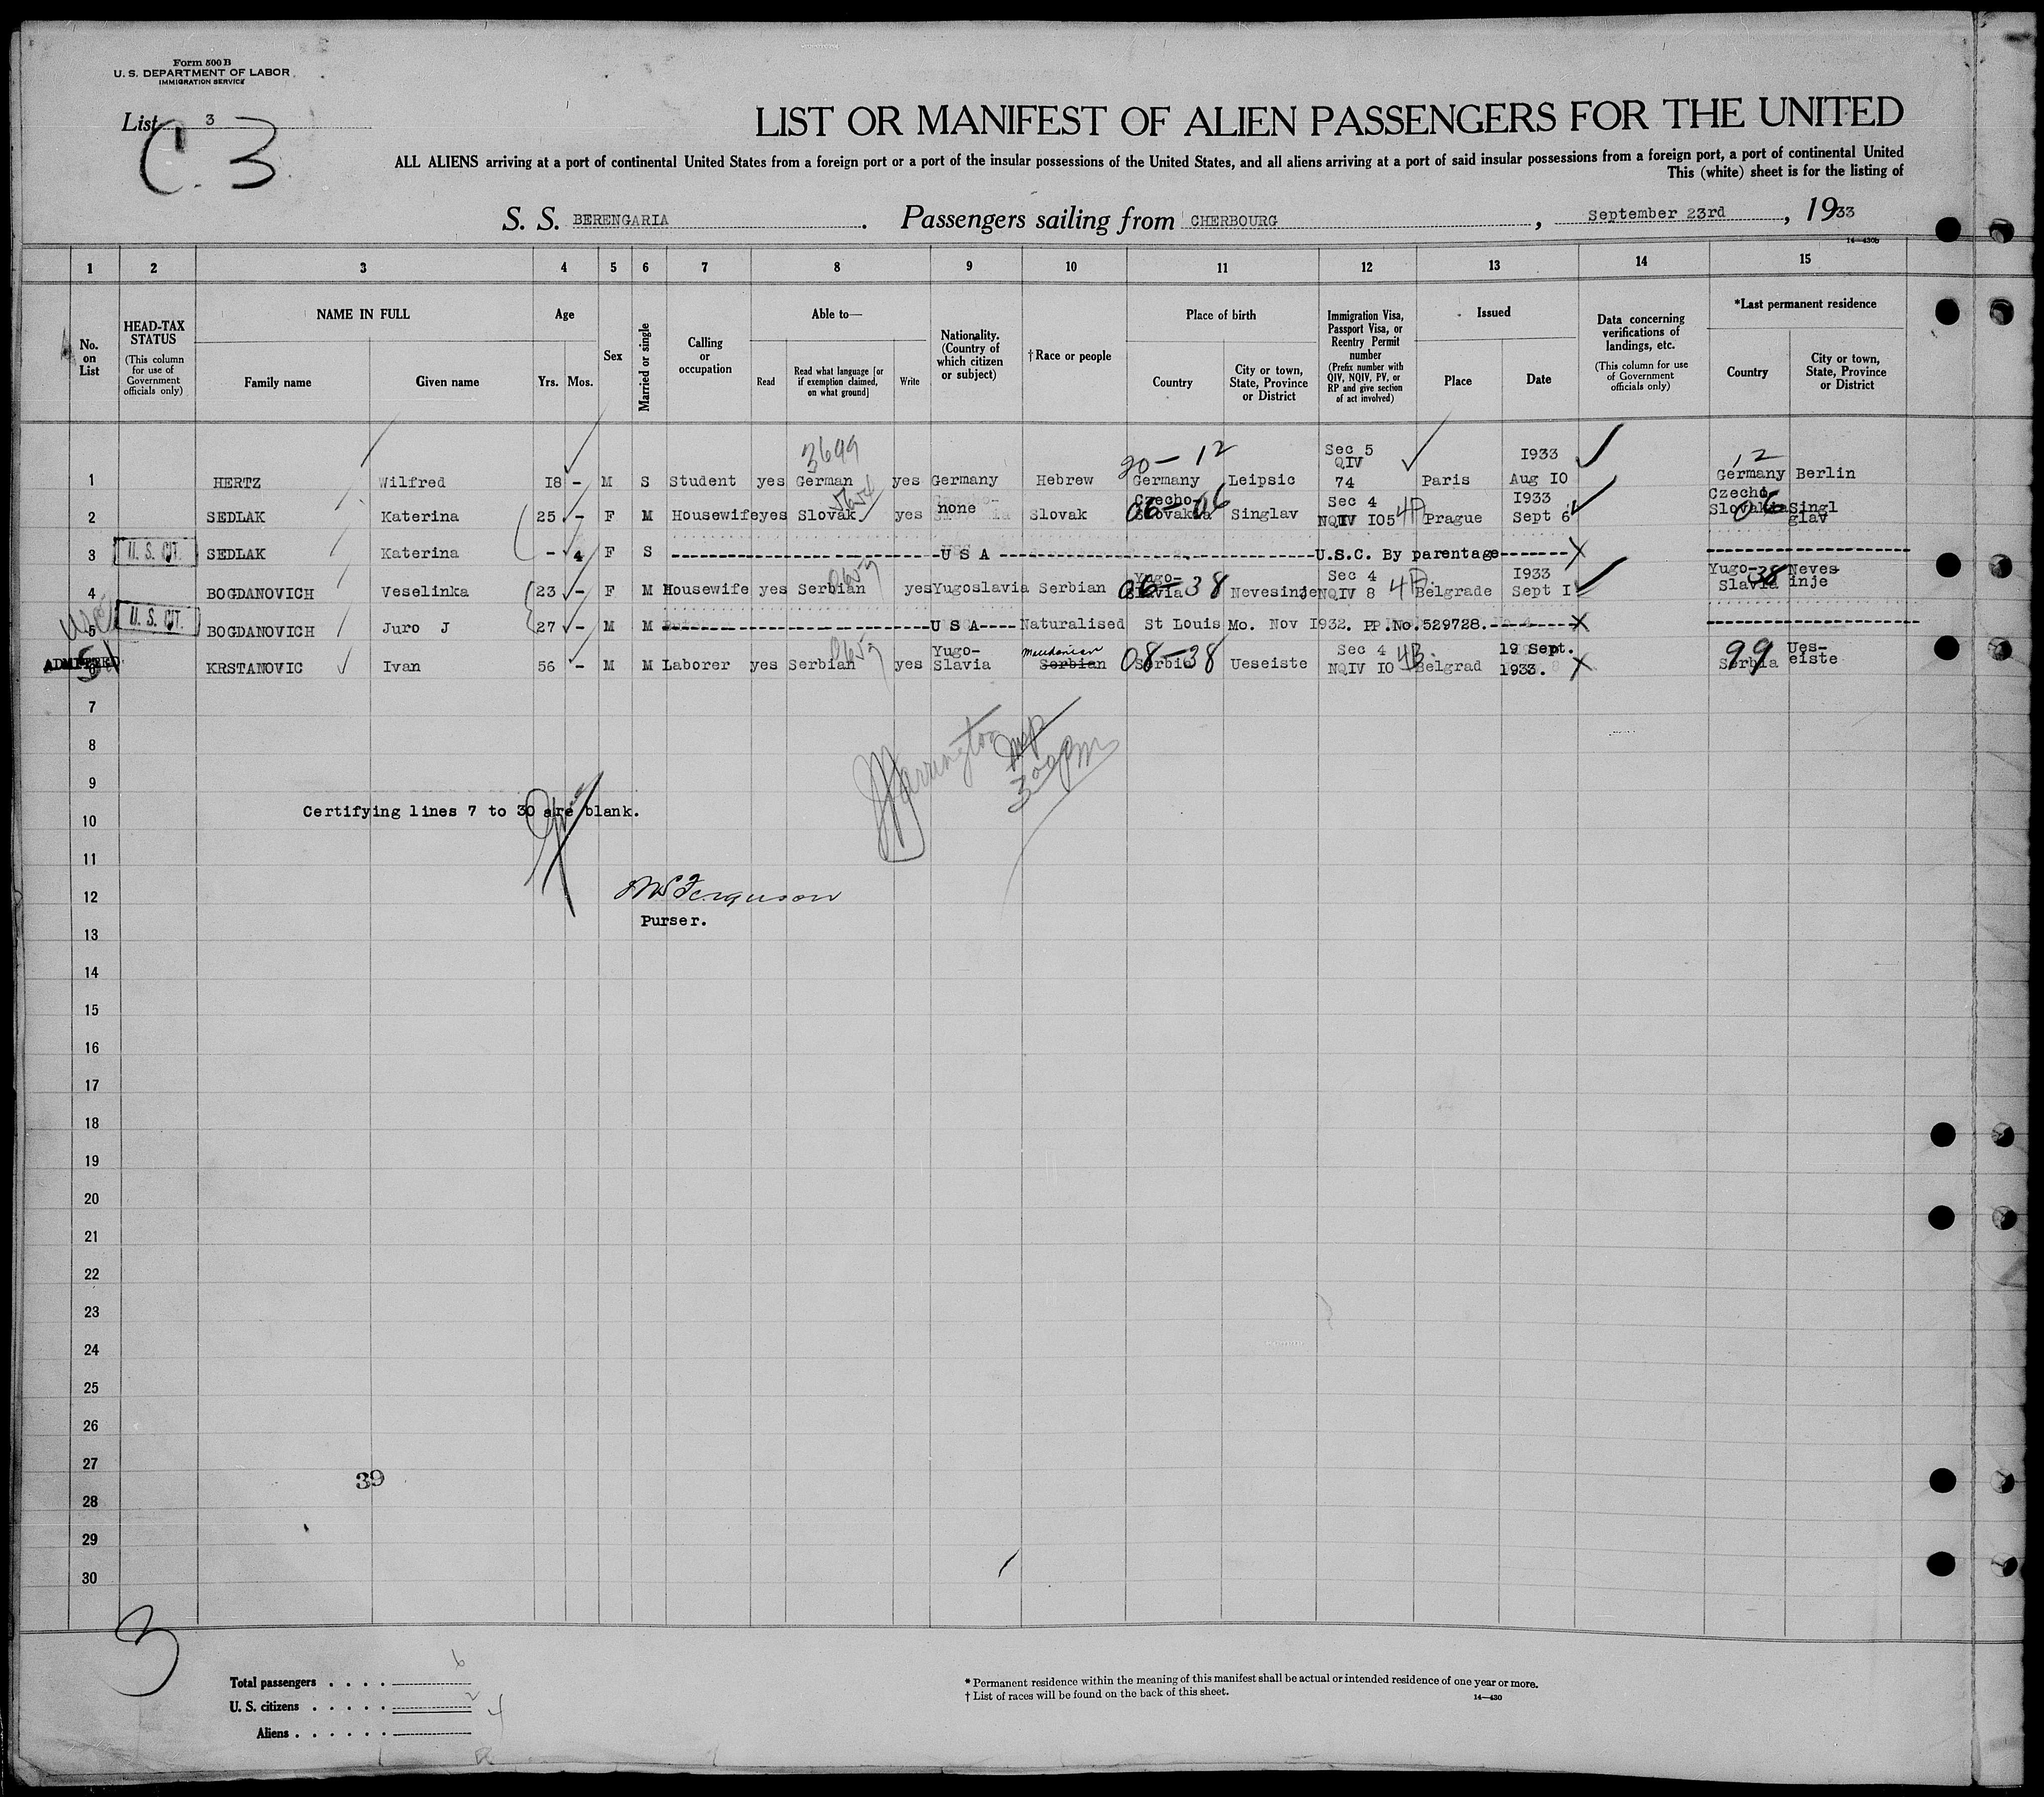 Form 500 B
U. S. DEPARTMENT OF LABOR
IMMIGRATION SERVICE
List 3
C. 3
LIST OR MANIFEST OF ALIEN PASSENGERS FOR THE UNITED
ALL ALIENS arriving at a port of continental United States from a foreign port or a port of the insular possessions of the United States, and all aliens arriving at a port of said insular possessions from a foreign port, a port of continental United
This (white) sheet is for the listing of
S. S. BERENGARIA. Passengers sailing from CHERBOURG, September 23rd, 1933
14—430b
1 2 3 4 5 6 7 8 9 10 11 12 13 14 15
No. on List
HEAD-TAX STATUS
(This column for use of Government officials only)
NAME IN FULL
Family name Given name
Age
Yrs. Mos.
Sex
Married or single
Calling or occupation
Able to—
Read
Read what language [or if exemption claimed, on what ground]
Write
Nationality. (Country of which citizen or subject)
†Race or people
Place of birth
Country
City or town, State, Province or District
Immigration Visa, Passport Visa, or Reentry Permit number
(Prefix number with QIV, NQIV, PV, or RP and give section of act involved)
Issued
Place Date
Data concerning verifications of landings, etc.
(This column for use of Government officials only)
*Last permanent residence
Country
City or town, State, Province or District
3699
20-12
12
1 HERTZ Wilfred 18 - M S Student yes German yes Germany Hebrew Germany Leipsic Sec 5 QIV 74 Paris 1933 Aug 10 Germany Berlin
2 SEDLAK Katerina 25 - F M Housewife yes Slovak yes none Slovak Czecho-Slovakia 06-06 Singlav Sec 4 NQIV 105 Prague 1933 Sept 6 Czecho Slovakia 06 Singl glav
3 U. S. CIT. SEDLAK Katerina - 4 F S U S A U.S.C. By parentage
4 BOGDANOVICH Veselinka 23 - F M Housewife yes Serbian yes Yugoslavia Serbian Yugo-Slavia 06-38 Nevesinje Sec 4 NQIV 8 Belgrade 1933 Sept 1 Yugo-Slavia 38 Neves-inje
5 U. S. CIT. BOGDANOVICH Juro J 27 - M M U S A Naturalised St Louis Mo. Nov 1932. PP.No.529728.
ADMITTED
6 KRSTANOVIC Ivan 56 - M M Laborer yes Serbian yes Yugo-Slavia Macedonian Serbian Serbia 08-38 Ueseiste Sec 4 NQIV 10 4B. Belgrad 19 Sept. 1933. Serbia 99 Ues-eiste
7
8
Harrington
300pm
9
Certifying lines 7 to 30 are blank.
10
11
12
Ferguson
Purser.
13
14
15
16
17
18
19
20
21
22
23
24
25
26
27
39
28
29
30
3
Total passengers 6
U. S. citizens 2
Aliens 4
* Permanent residence within the meaning of this manifest shall be actual or intended residence of one year or more.
† List of races will be found on the back of this sheet.
14—430